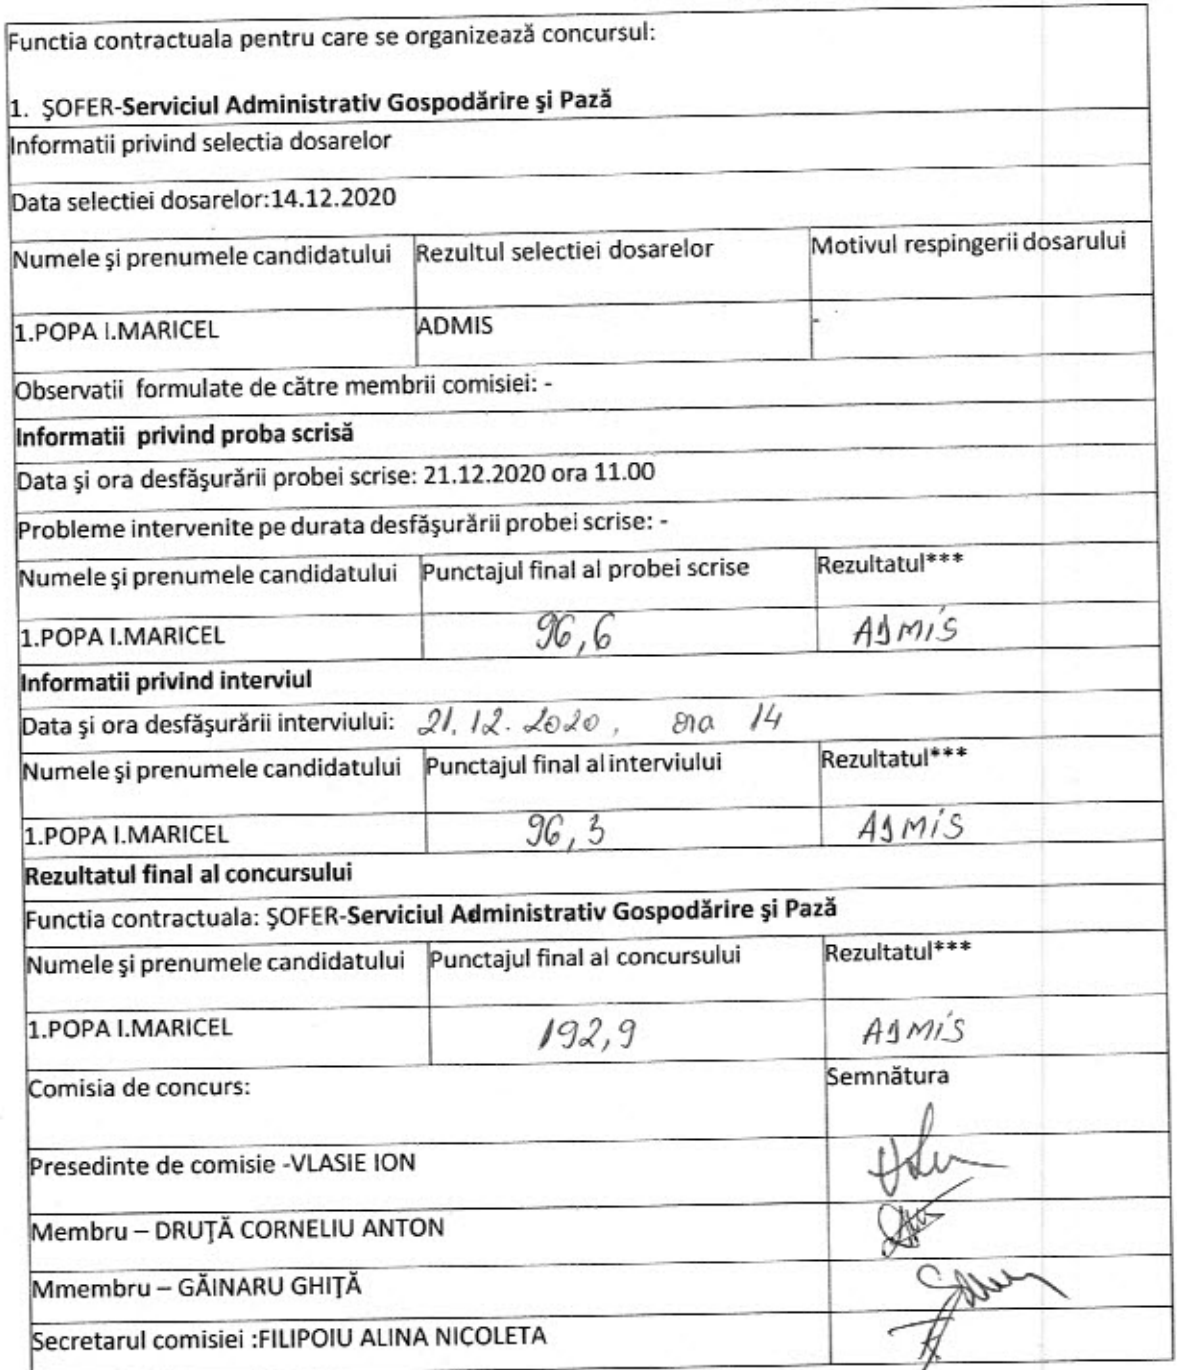 Functia contractuala pentru care se organizează concursul:
1. ŞOFER-Serviciul Administrativ Gospodărire şi Pază
Informatii privind selectia dosarelor
Data selectiei dosarelor:14.12.2020
Numele şi prenumele candidatului Rezultul selectiei dosarelor Motivul respingerii dosarului
1.POPA I.MARICEL ADMIS -
Observatii formulate de către membrii comisiei: -
Informatii privind proba scrisă
Data şi ora desfăşurării probei scrise: 21.12.2020 ora 11.00
Probleme intervenite pe durata desfăşurării probei scrise: -
Numele şi prenumele candidatului Punctajul final al probei scrise Rezultatul***
1.POPA I.MARICEL 96,6 ADMIS
Informatii privind interviul
Data şi ora desfăşurării interviului: 21.12.2020, ora 14
Numele şi prenumele candidatului Punctajul final al interviului Rezultatul***
1.POPA I.MARICEL 96,3 ADMIS
Rezultatul final al concursului
Functia contractuala: ŞOFER-Serviciul Administrativ Gospodărire şi Pază
Numele şi prenumele candidatului Punctajul final al concursului Rezultatul***
1.POPA I.MARICEL 192,9 ADMIS
Comisia de concurs: Semnătura
Presedinte de comisie -VLASIE ION
Membru – DRUŢĂ CORNELIU ANTON
Mmembru – GĂINARU GHIŢĂ
Secretarul comisiei :FILIPOIU ALINA NICOLETA